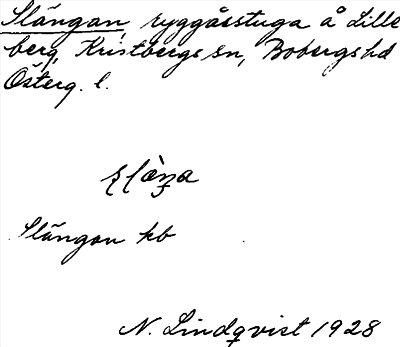 Slängan ryggåsstuga å Lille
berg, Kristbergs sn, Bobergs hd
Österg. l.
Slängan kb
N. Lindqvist 1928